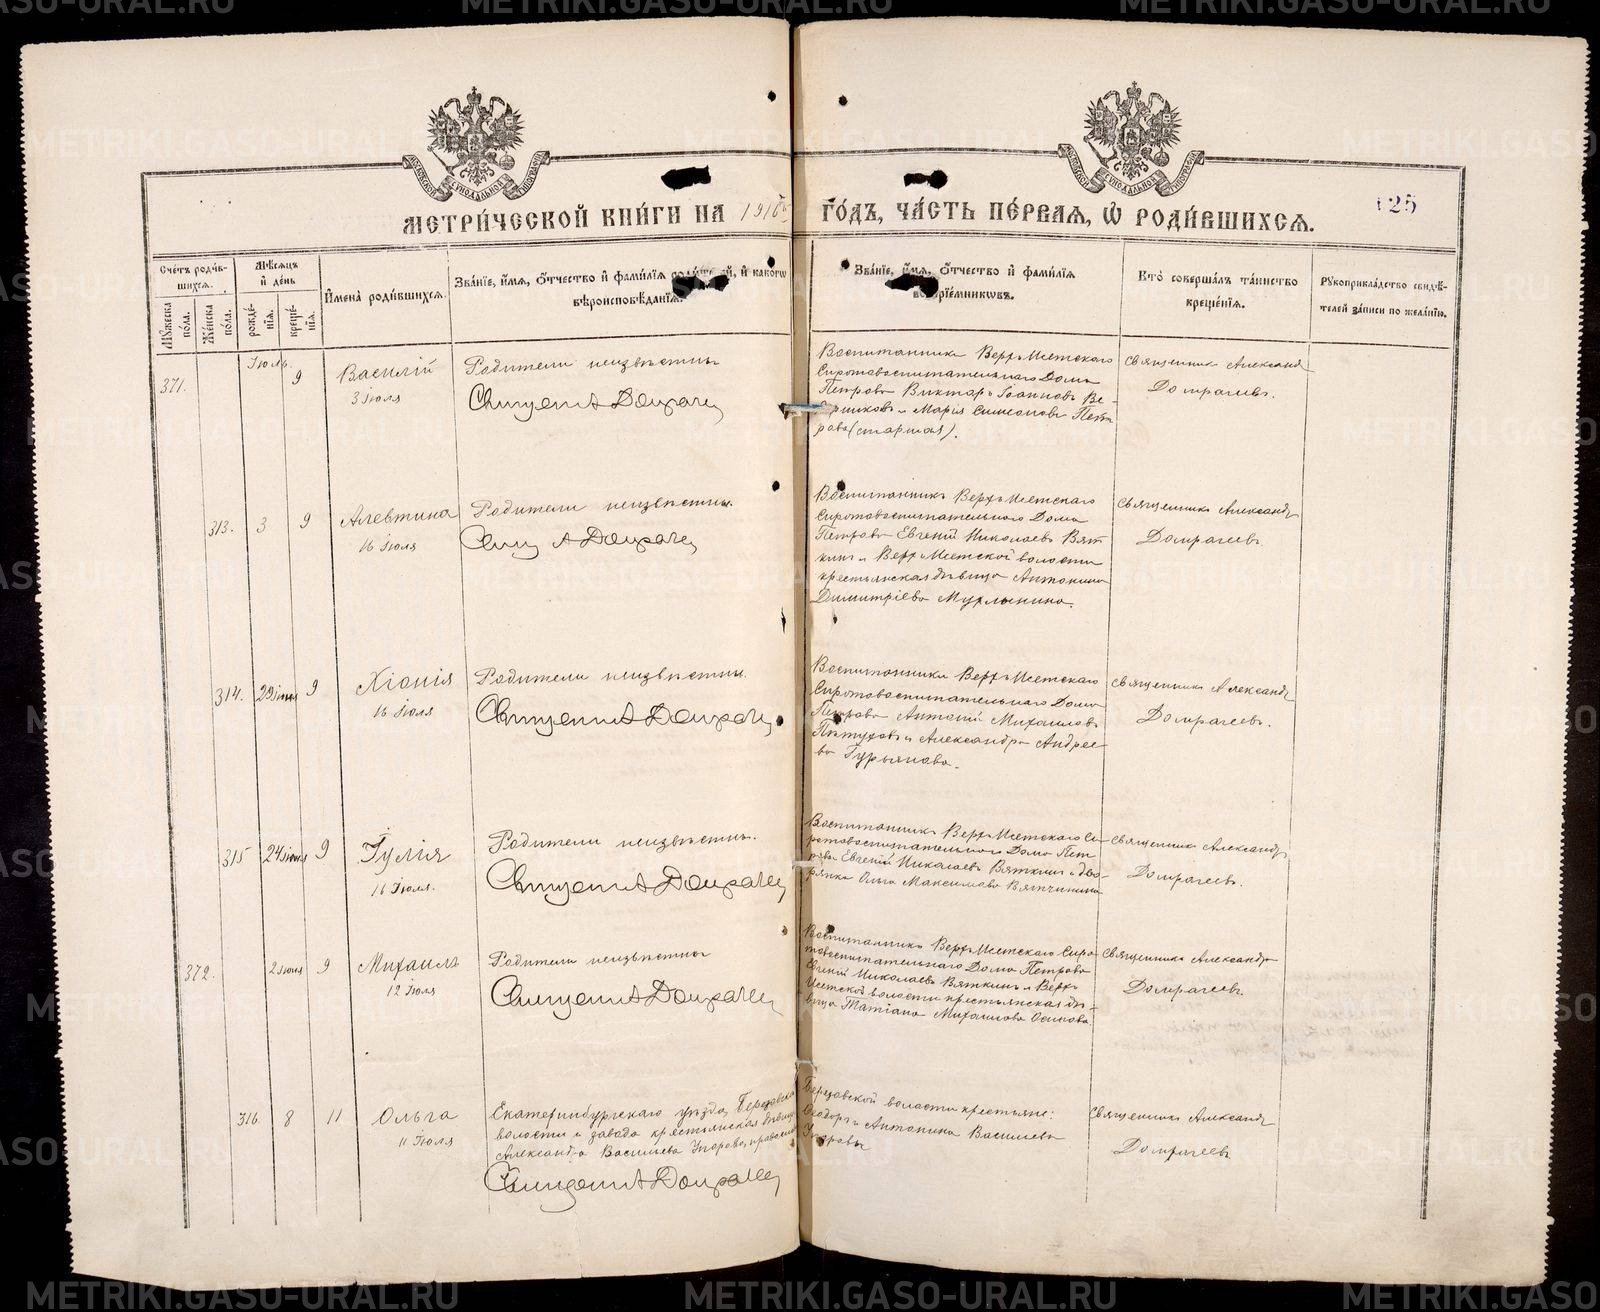 МЕТРИЧЕСКОЙ КНИГИ НА 1916
ГОДЪ, ЧАСТЬ ПЕРВАЯ, Ѡ РОДИВШИХСЯ.
125
Счетъ родив-
шихся.
Мужеска
пола.
Женска
пола.
Мѣсяцъ
и день
рожде-
нія.
креще-
нія.
Имена родившихся.
Званіе, имя, отчество и фамилія родителей, и какого
вѣроисповѣданія.
Званіе, имя, отчество и фамилія
воспріемниковъ.
Кто совершалъ таинство
крещенія.
Рукоприкладство свидѣ-
телей записи по желанію.
371.
Іюль.
9
Василій
3 Іюля
Родители неизвѣстны
Воспитанники Верхъ-Исетскаго
Сиротовоспитательнаго Дома
Петрова Викторъ Іоанновъ
и Марія Симеонова Пет-
рова (старшая).
Священникъ Александръ
Домрачевъ.
313. 3 9
Алевтина
16 Іюля
Родители неизвѣстны.
Воспитанникъ Верхъ-Исетскаго
Сиротовоспитательнаго Дома
Петрова Евгеній Николаевъ Вят-
кинъ и Верхъ-Исетской волости
крестьянская дѣвица Антонина
Димитріева Мурлынина.
Священникъ Александръ
Домрачевъ.
314. 29 іюня 9
Хіонія
16 Іюля
Родители неизвѣстны.
Воспитанники Верхъ-Исетскаго
Сиротовоспитательнаго Дома
Петрова Антоній Михаиловъ
Пѣтуховъ и Александра Андрее-
ва Гурьянова.
Священникъ Александръ
Домрачевъ.
315 24 іюня 9
Іулія
16 Іюля.
Родители неизвѣстны.
Воспитанникъ Верхъ-Исетскаго Си-
ротовоспитательнаго Дома Пет-
рова Евгеній Николаевъ Вяткинъ и дво-
рянка Ольга Максимова Вятчинина
Священникъ Александръ
Домрачевъ.
372. 2 іюля 9
Михаилъ
12 Іюля
Родители неизвѣстны
Воспитанникъ Верхъ-Исетскаго Сиро-
товоспитательнаго Дома Петрова
Евгеній Николаевъ Вяткинъ и Верхъ-
Исетской волости крестьянская дѣ-
вица Татіана Михаилова Осипова
Священникъ Александръ
Домрачевъ.
316. 8 11
Ольга
11 Іюля
Екатеринбургскаго уѣзда, Березовской
волости и завода крестьянская дѣвица
Александра Васильева Угорова, православ.
Березовской волости крестьяне:
Ѳеодоръ и Антонина Васильевы
Угоровы
Священникъ Александръ
Домрачевъ
METRIKI.GASO-URAL.RU